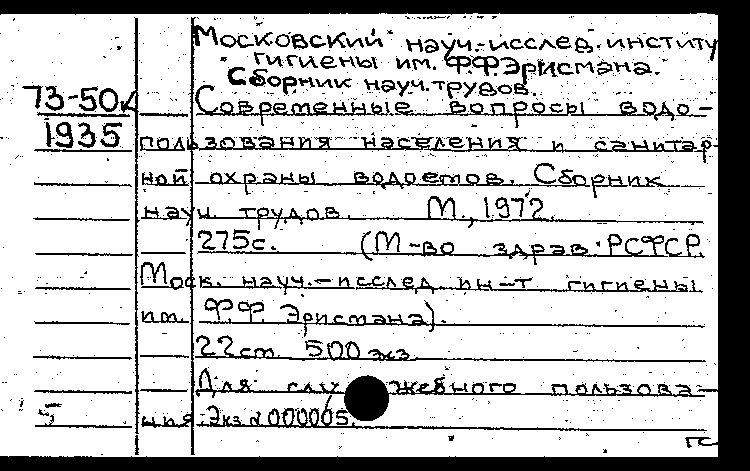 Московский науч.-исслед. институ
гигиены им. Ф.Ф.Эрисмана.
Сборник науч. трудов.
73-50к Современные вопросы водо-
1935 пользования населения и санитар-
ной охраны водоемов. Сборник
науч. трудов. М., 1972.
275с. (М-во здрав. РСФСР.
Моск. науч.-исслед. ин-т гигиены
им. Ф.Ф. Эрисмана).
22см. 500 экз.
Для служебного пользова-
5 ния. Экз. №000005.
гс